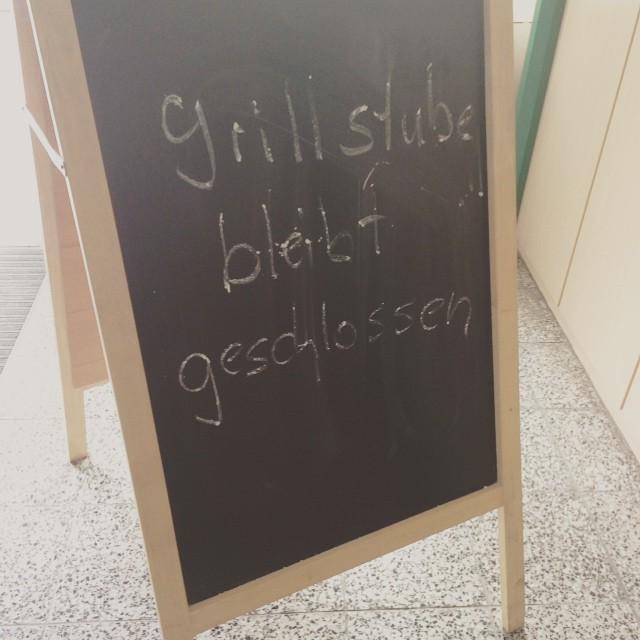 Grillstube
bleibt
geschlossen